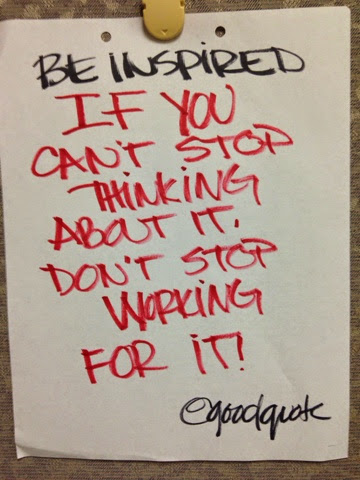 BE INSPIRED
IF YOU
CAN'T STOP
THINKING
ABOUT IT,
DON'T STOP
WORKING
FOR IT!
@goodquote